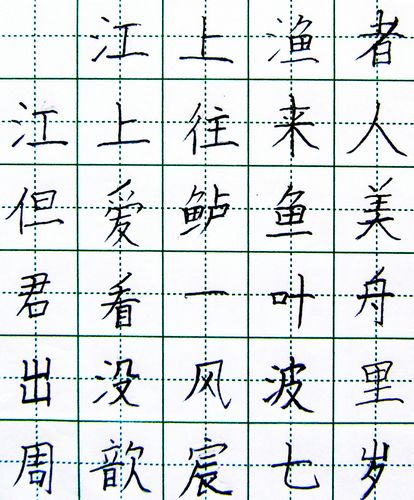 江上渔者
江上往来人
但爱鲈鱼美
君看一叶舟
出没风波里
周歆宸七岁